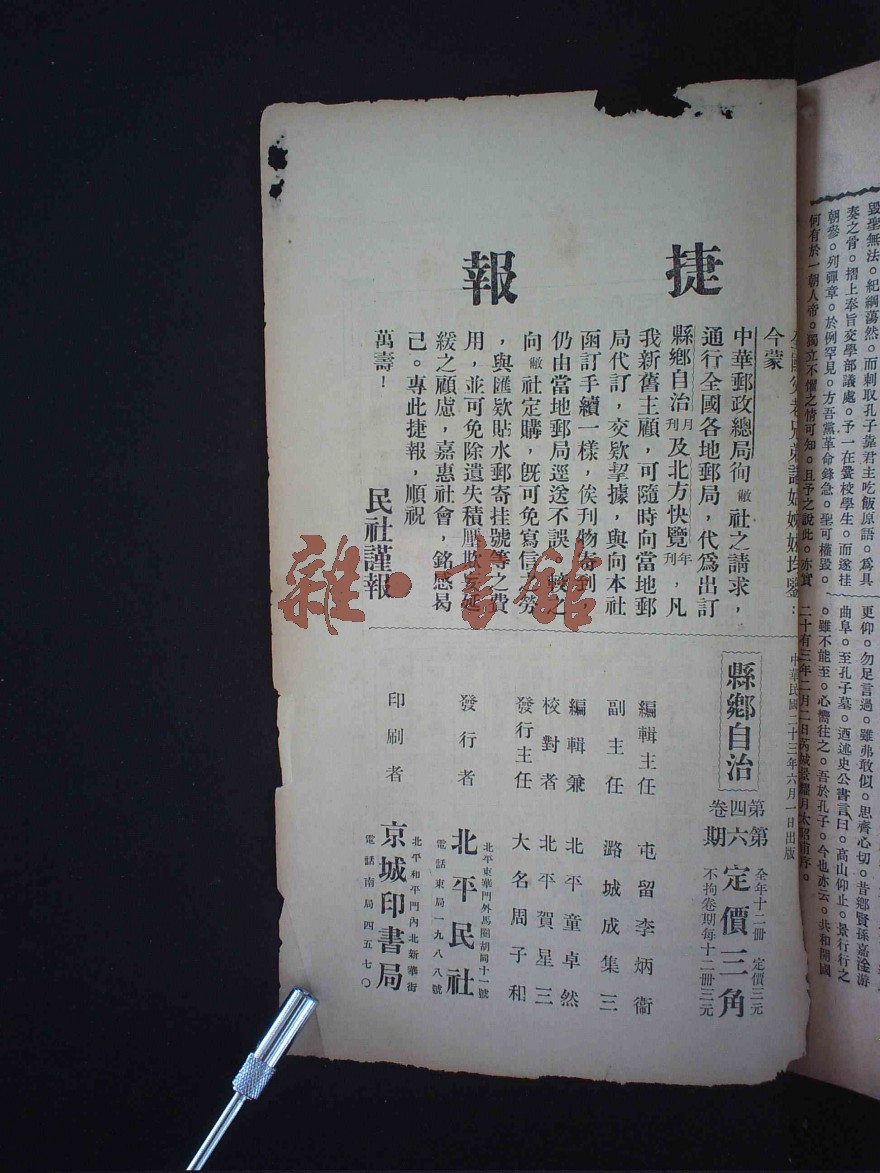 捷報
今蒙
中華郵政總局徇敝社之請求，
通行全國各地郵局，代爲出訂
縣鄉自治月刊及北方快覽年刊，凡
我新舊主顧，可隨時向當地郵
局代訂，交欵掣據，與向本社
函訂手續一樣，俟刊物寄到，
仍由當地郵局逕送不誤，較之
向敝社定購，旣可免寫信之勞
，與匯欵貼水郵寄挂號等之費
用，並可免除遺失積壓欺妄延
緩之顧慮，嘉惠社會，銘感曷
已。專此捷報，順祝
萬壽！
民社謹報
中華民國二十三年六月一日出版
縣鄉自治
第四卷
第六期
定價三角
全年十二冊 定價三元
不拘卷期每十二冊三元
編輯主任 屯留李炳衞
副主任 潞城成集三
編輯兼 北平童卓然
校對者 北平賀星三
發行主任 大名周子和
發行者 北平民社
北平東華門外馬圈胡同十一號
電話東局一九八八號
印刷者 京城印書局
北平和平門內北新華街
電話南局四五七〇
毀聖無法。紀綱蕩然。而刺取孔子靠君主吃飯原語。爲具
奏之骨。摺上奉旨交學部議處。予一在黌校學生。而遂挂
朝參。列彈章。於例罕見。方吾黨革命鋒急。聖可權毀。
何有於一朝人帝。獨立不懼之情可知。且予之說此。亦實
更仰。勿足言過。雖弗敢似。思齊心切。昔鄉賢孫嘉淦游
曲阜。至孔子墓。迺述史公書言曰。高山仰止。景行行之
。雖不能至。心嚮往之。吾於孔子。今也亦云。共和開國
二十有三年二月二日芮城景耀月太昭甫序。
雜·書館